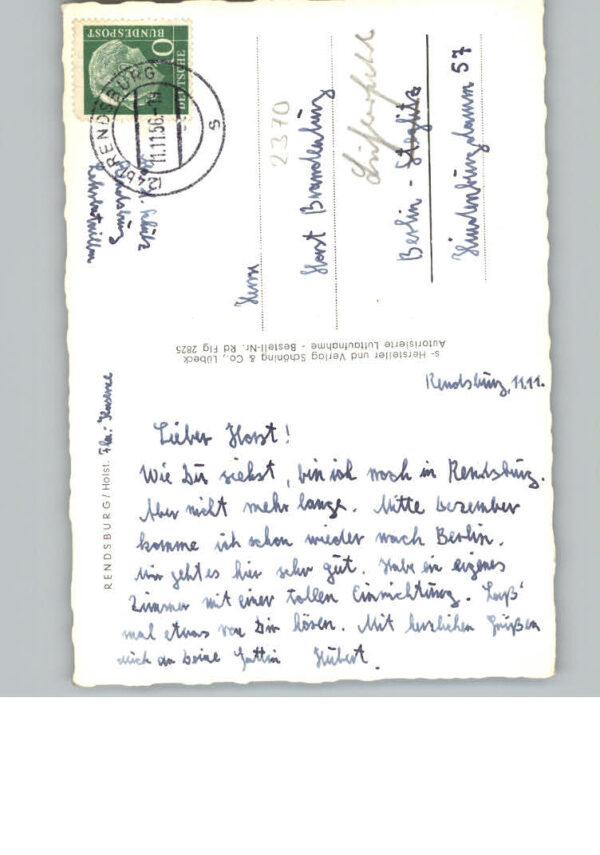 Rendsburg, 11.11.
Lieber Horst!
Wie Du siehst, bin ich noch in Rendsburg.
Aber nicht mehr lange. Mitte Dezember
komme ich schon wieder nach Berlin.
Mir geht es hier sehr gut. Habe ein eigenes
Zimmer mit einer tollen Einrichtung. Laß'
mal etwas von Dir hören. Mit herzlichen Grüßen
auch an Deine Gattin Hubert.
RENDSBURG/Holst.
s- Hersteller und Verlag Schöning & Co., Lübeck
Autorisierte Luftaufnahme - Bestell-Nr. Rd Flg 2825
DEUTSCHE
BUNDESPOST
RENDSBURG
11.11.56.
s
Rendsburg
Herrn
2370
Horst Brandenburg
Berlin - Steglitz
Hindenburgdamm 57